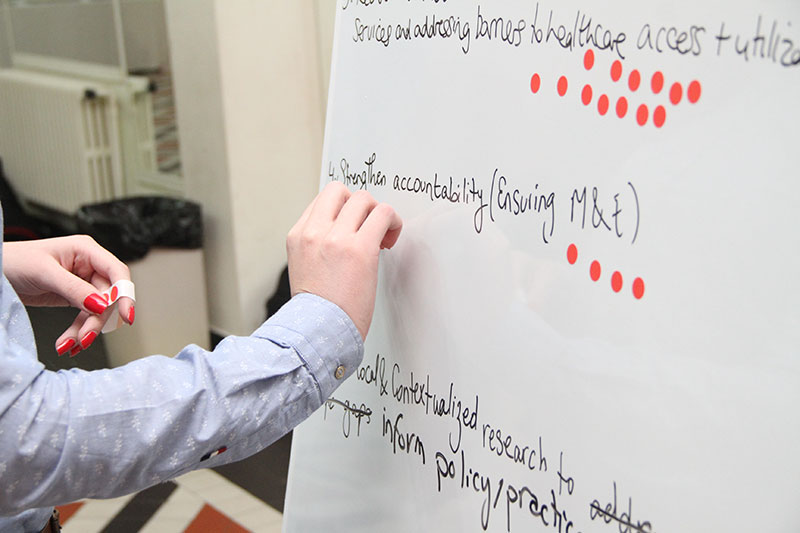 Services and addressing barriers to healthcare access + utiliza
4. Strengthen accountability (Ensuring M&E)
local & Contextualized research to
gaps inform policy/practice